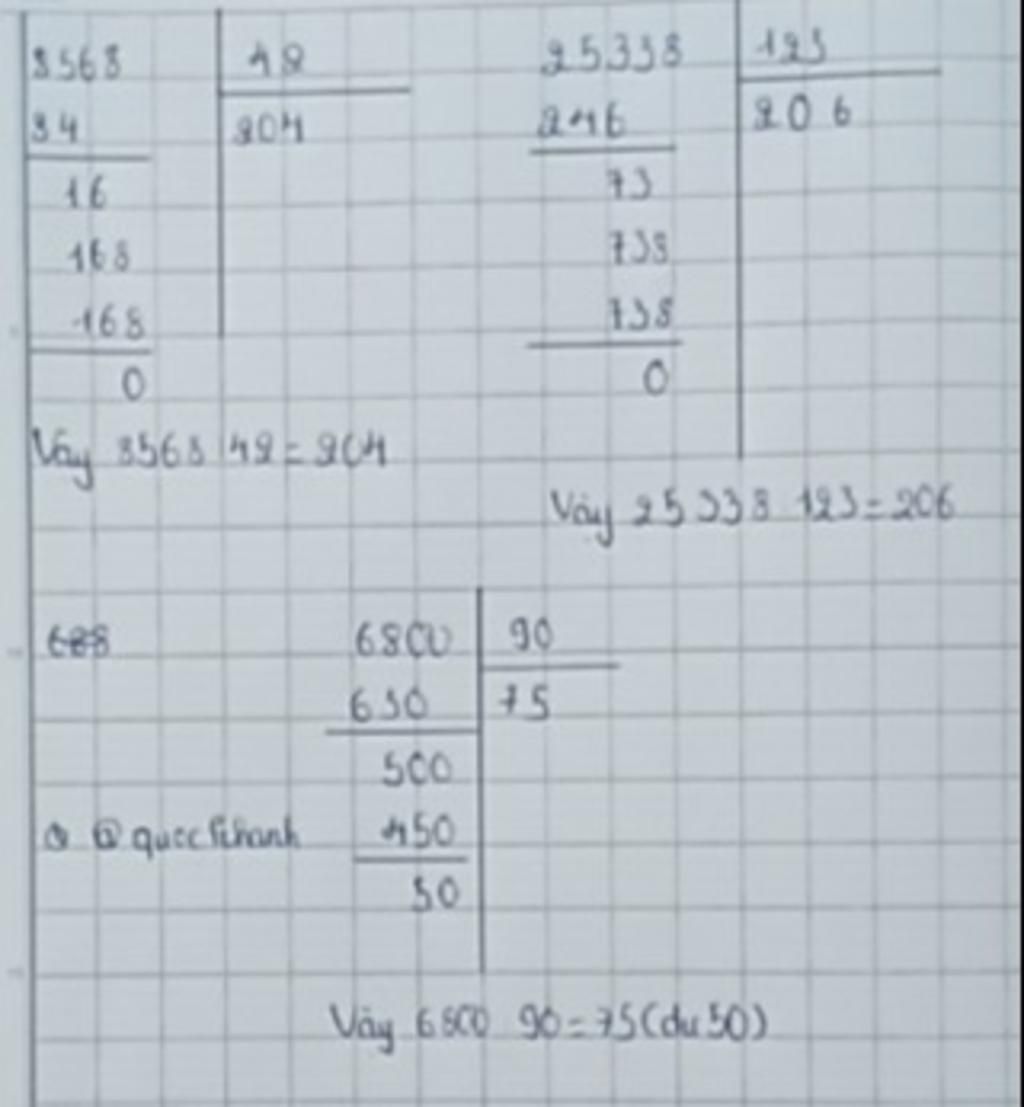 8568 42
84 204
16
168
168
0
Vậy 8568 42 = 204
25338 123
246 206
73
738
738
0
Vậy 25 338 123 = 206
6800 90
630 75
500
450
50
@quocthanh
Vậy 6800 90 = 75 (dư 50)